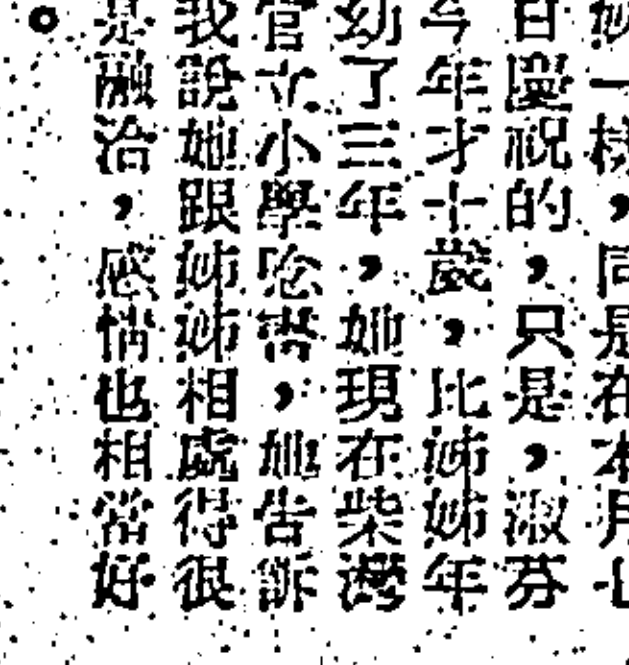 一樣，同是在本月七
日慶祝的，只是，淑芬
今年才十歲，比姊姊年
幼了三年，她現在柴灣
官立小學唸書，她告訴
我說她跟姊姊相處得很
是融洽，感情也相當好
。